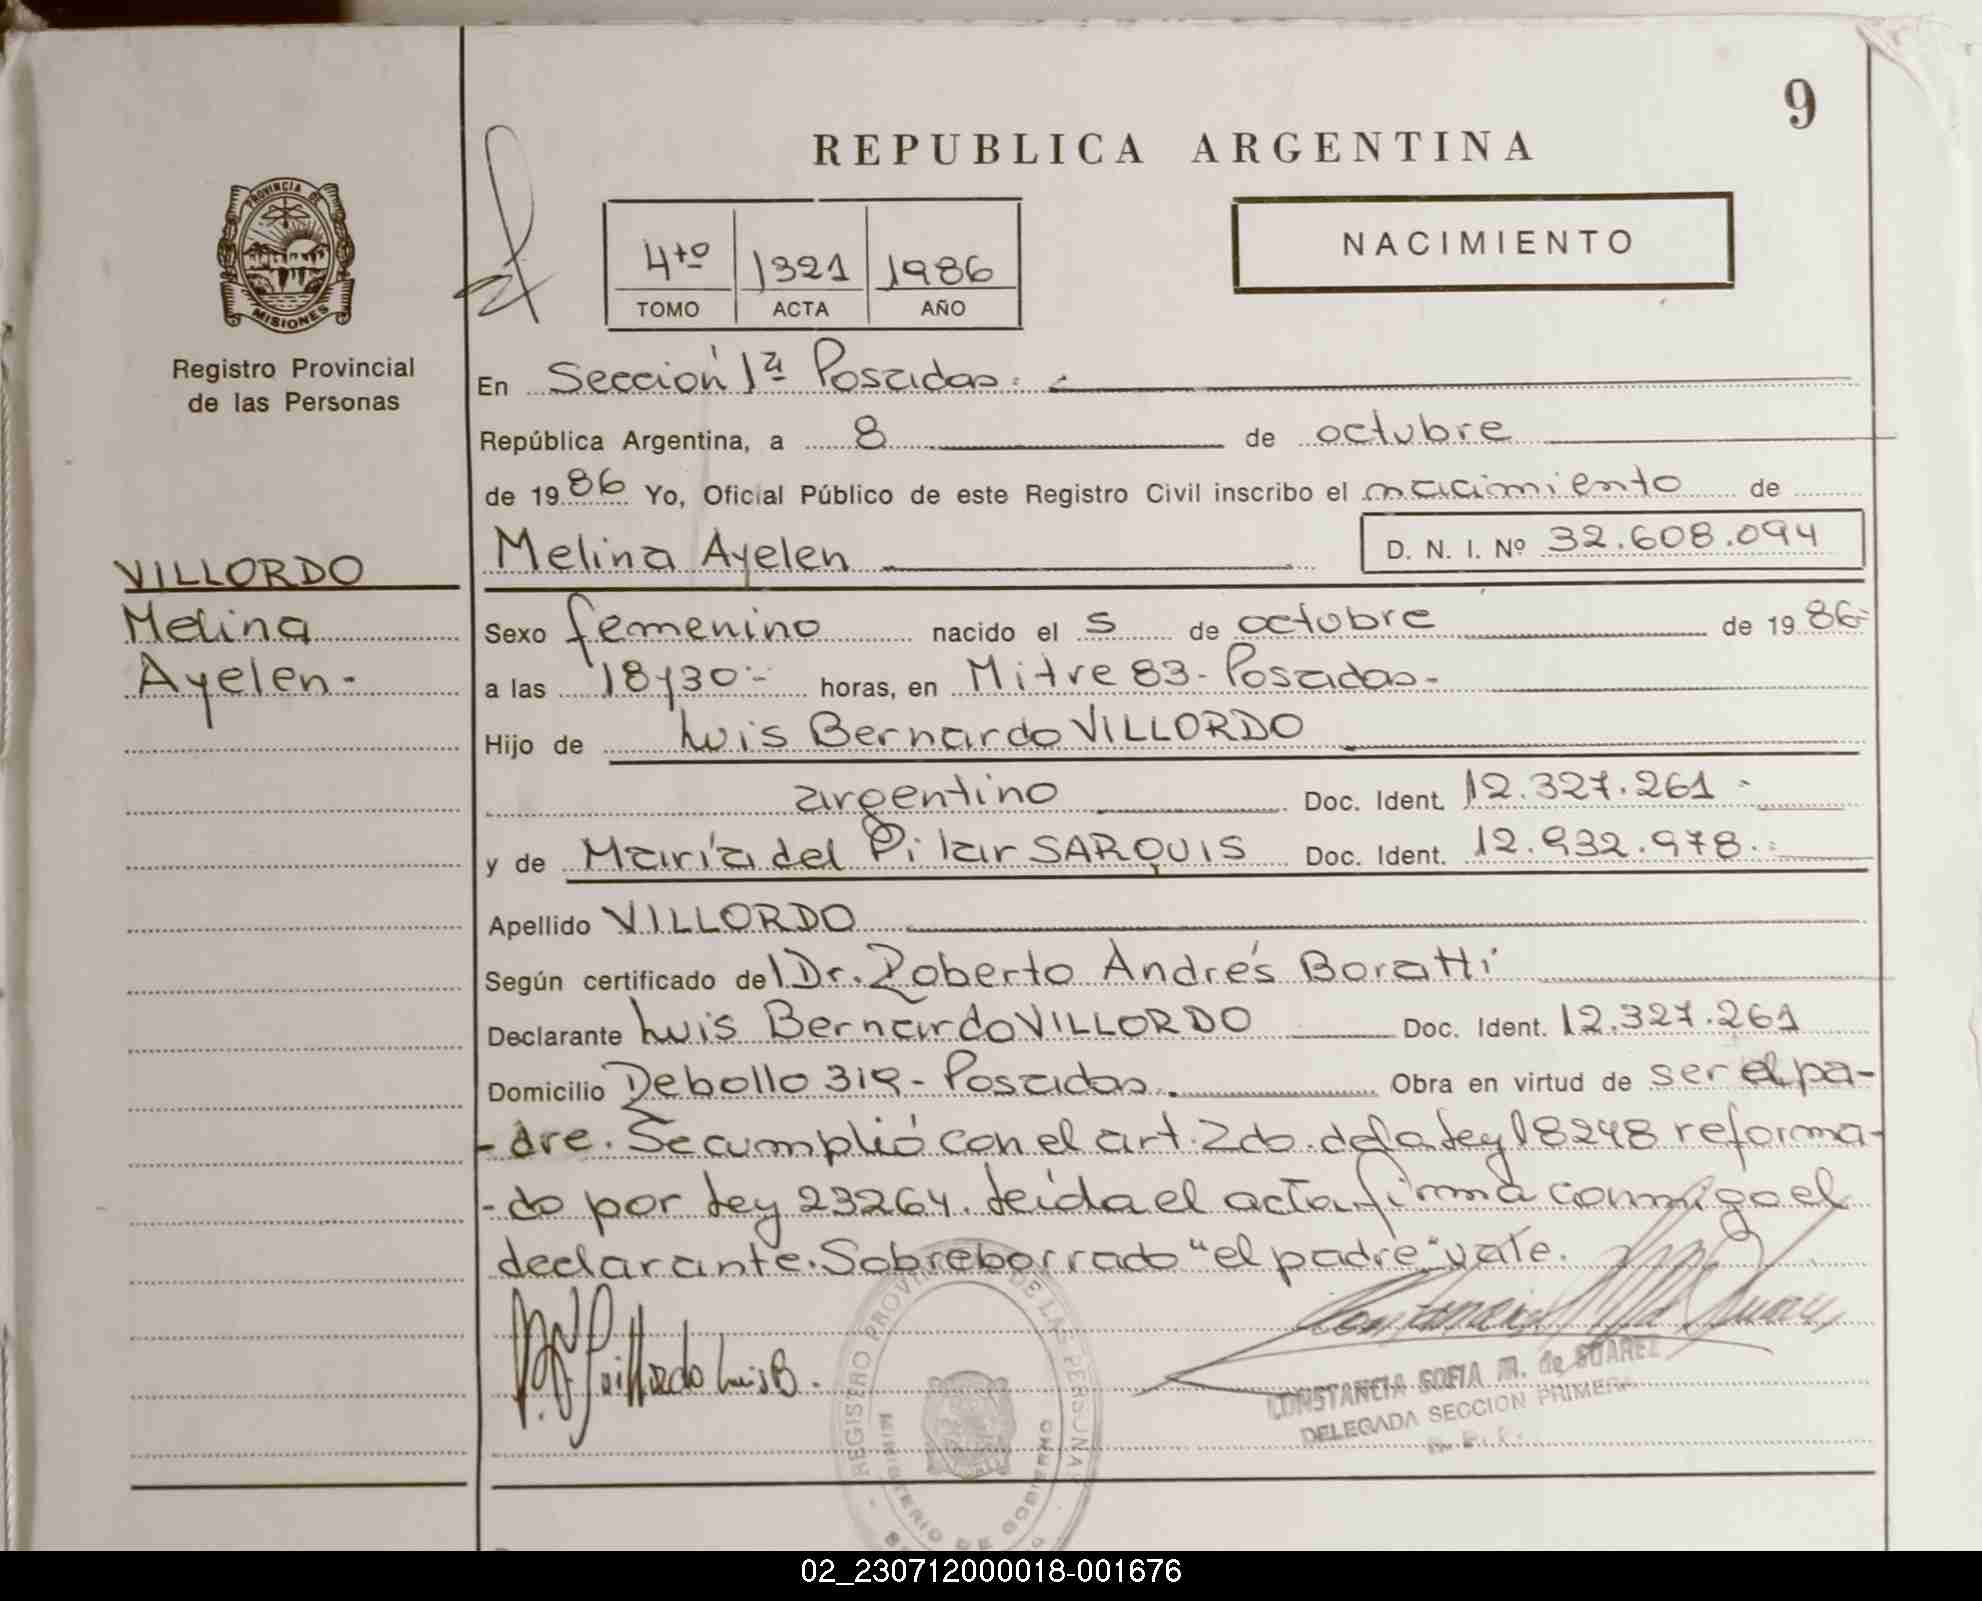 9
REPUBLICA ARGENTINA
PROVINCIA DE
MISIONES
Registro Provincial
de las Personas
4to 1321 1986
TOMO ACTA AÑO
NACIMIENTO
En Sección 1ª Posadas.
República Argentina, a 8 de octubre
de 1986 Yo, Oficial Público de este Registro Civil inscribo el nacimiento de
Melina Ayelen D. N. I. Nº 32.608.094
VILLORDO
Melina
Ayelen-
Sexo femenino nacido el 5 de octubre de 1986-
a las 18y30- horas, en Mitre 83- Posadas-
Hijo de Luis Bernardo VILLORDO
argentino Doc. Ident. 12.327.261-
y de María del Pilar SARQUIS Doc. Ident. 12.932.978.
Apellido VILLORDO
Según certificado del Dr. Roberto Andrés Boratti
Declarante Luis Bernardo VILLORDO Doc. Ident. 12.327.261
Domicilio Debollo 319- Posadas. Obra en virtud de ser el pa-
-dre. Se cumplió con el art. 2do. de la Ley 18248 reforma-
-do por Ley 23264. Leída el acta firma conmigo el
declarante. Sobreborrado "el padre" vale.
Luis B.
REGISTRO PROVINCIAL DE LAS PERSONAS
MINISTERIO DE GOBIERNO
CONSTANCIA SOFIA M. de SUAREZ
DELEGADA SECCION PRIMERA
02_230712000018-001676